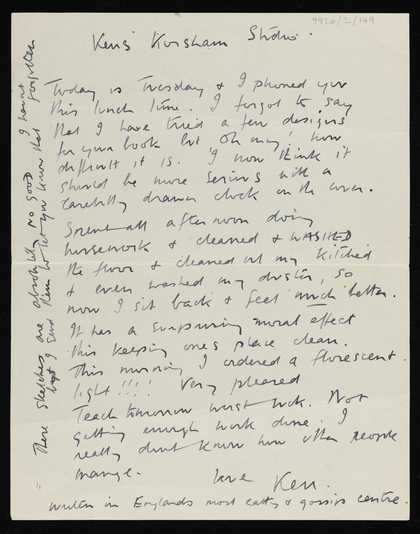 9920/2/149
Ken's Korsham Studio.
Today is Tuesday & I phoned you
this lunch time. I forgot to say
that I have tried a few designs
for your book but oh my, how
difficult it is. I now think it
should be more serious with a
carefully drawn clock on the cover.
Spent all afternoon doing
housework & cleaned & WASHED
the floor & cleaned out my kitchen
& even washed my duster, so
now I sit back & feel much better.
It has a surprising moral effect
this keeping ones place clean.
This morning I ordered a florescent
light!!!! Very pleased
Teach tomorrow worst luck. Not
getting enough work done. I
really dont know how other people
manage.
love Ken.
written in Englands most catty & gossipy centre.
These sketches are absolutely no good
but I send them to let you know that I havnt forgotten